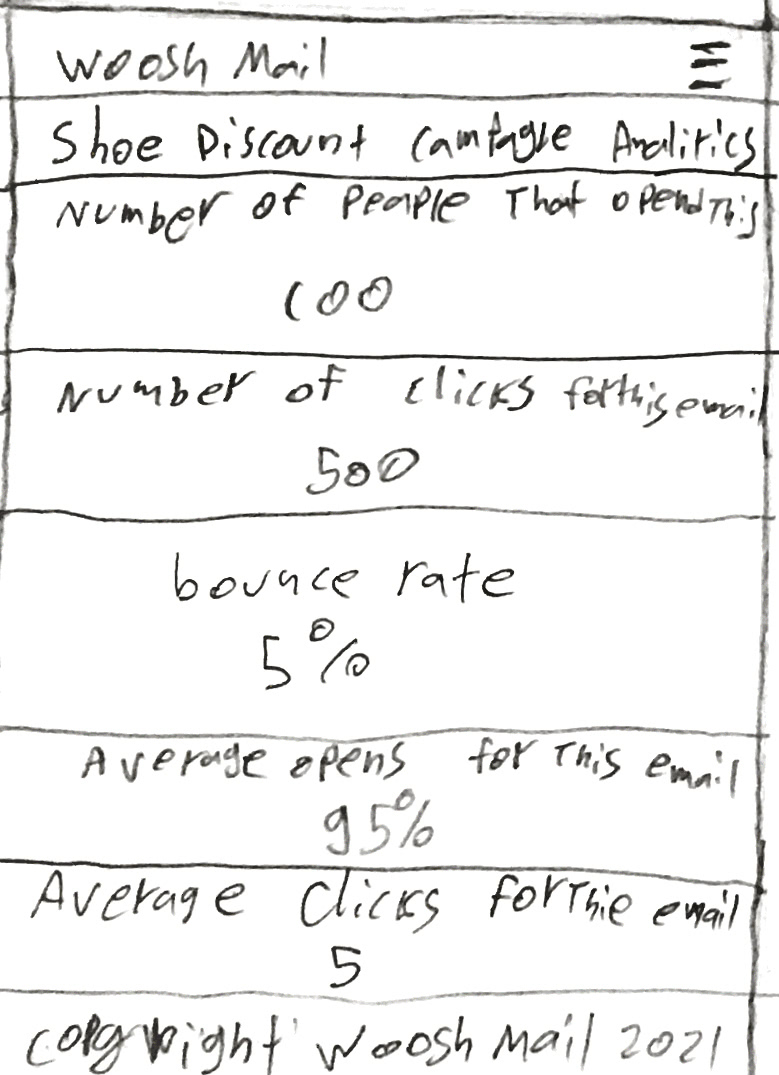 Woosh Mail
Shoe Discount Campagie Analitics
Number of People That opend This
100
Number of clicks for this email
500
bounce rate
5%
Average opens for This email
95%
Average Clicks for Thie email
5
Copyright Woosh Mail 2021